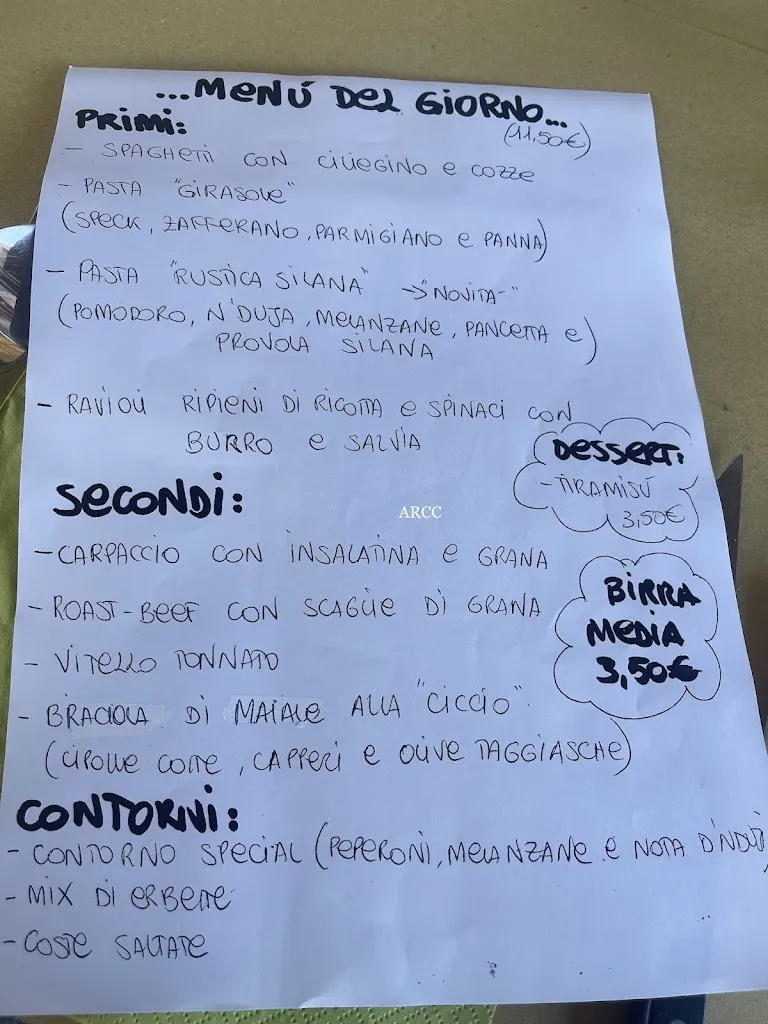 ...MENÚ DEL GIORNO...
(11,50€)
PRIMI:
- SPAGHETTI CON CILIEGINO E COZZE
- PASTA "GIRASOLE"
(SPECK, ZAFFERANO, PARMIGIANO E PANNA)
- PASTA "RUSTICA SILANA" → "NOVITA'"
(POMODORO, N'DUJA, MELANZANE, PANCETTA E
PROVOLA SILANA)
- RAVIOLI RIPIENI DI RICOTTA E SPINACI CON
BURRO E SALVIA
DESSERT:
- TIRAMISÚ
3,50€
SECONDI:
- CARPACCIO CON INSALATINA E GRANA
- ROAST-BEEF CON SCAGLIE DI GRANA
- VITELLO TONNATO
- BRACIOLA DI MAIALE ALLA "CICCIO"
(CIPOLLE COTTE, CAPPERI E OLIVE TAGGIASCHE)
BIRRA
MEDIA
3,50€
CONTORNI:
- CONTORNO SPECIAL (PEPERONI, MELANZANE E NOTA D'NDUJ
- MIX DI ERBETTE
- COSTE SALTATE
ARCC